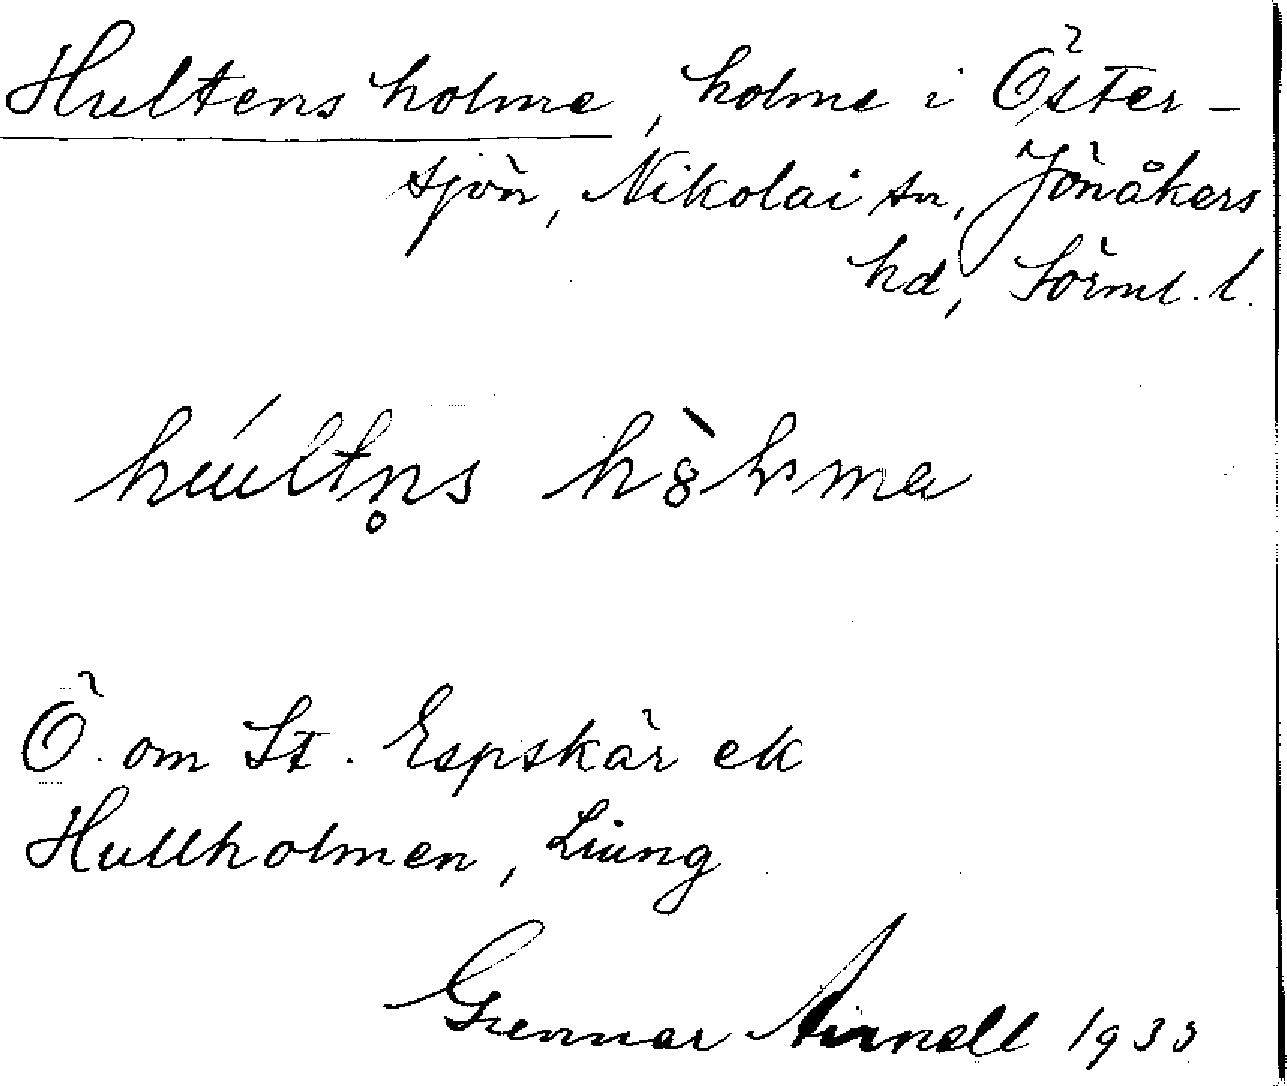 Hultens holme, holme i Öster-
sjön, Nikolai sn, Jönåkers
hd, Sörml. l.
húltn̥s
Ö. om St. Espskär ek
Hullholmen, Liung
Gunnar Arnell 1933